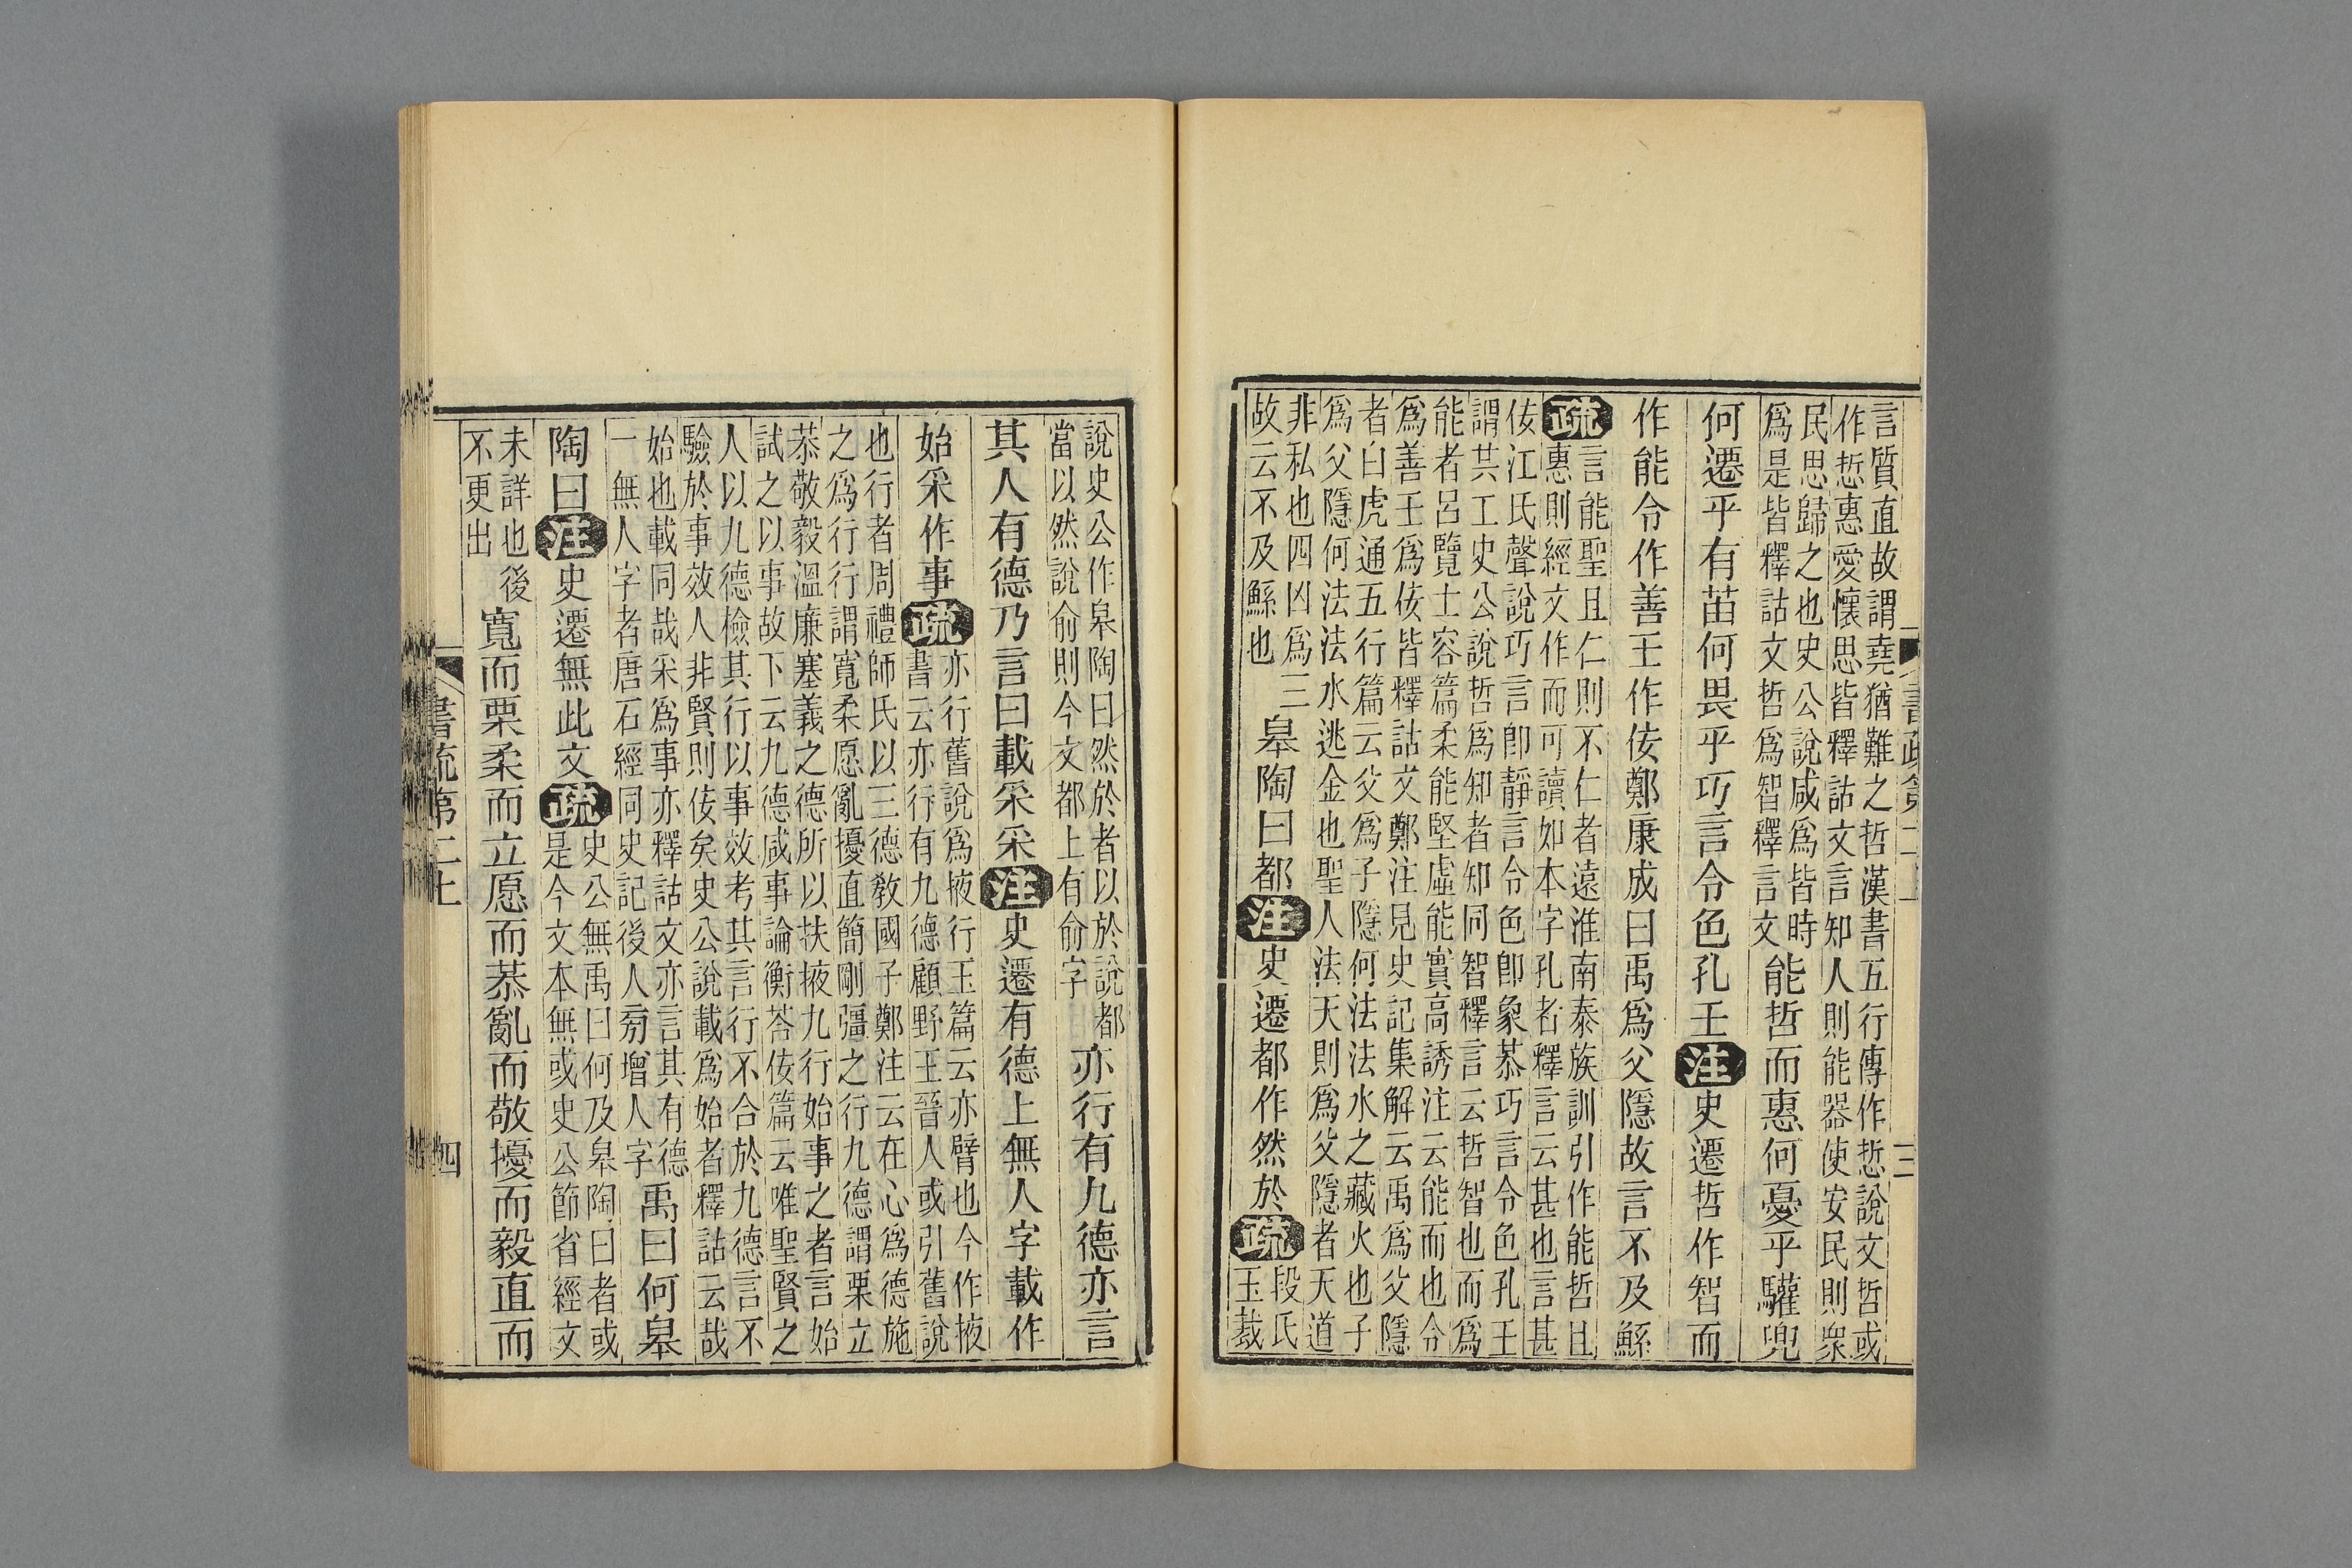 言質直故謂堯猶難之哲漢書五行傳作悊說文哲或
作悊惠愛懷思皆釋詁文言知人則能器使安民則衆
民思歸之也史公說咸爲皆時
爲是皆釋詁文哲爲智釋言文
能哲而惠何憂乎驩兜
何遷乎有苗何畏乎巧言令色孔壬
注
史遷哲作智而
作能令作善壬作佞鄭康成曰禹爲父隱故言不及鯀
疏
言能聖且仁則不仁者遠淮南泰族訓引作能哲且
惠則經文作而可讀如本字孔者釋言云甚也言甚
佞江氏聲說巧言卽靜言令色卽象恭巧言令色孔壬
謂共工史公說哲爲知者知同智釋言云哲智也而爲
能者呂覽士容篇柔能堅虛能實高誘注云能而也令
爲善壬爲佞皆釋詁文鄭注見史記集解云禹爲父隱
者白虎通五行篇云父爲子隱何法法水之藏火也子
爲父隱何法法水逃金也聖人法天則爲父隱者天道
非私也四凶爲三
故云不及鯀也
皋陶曰都
注
史遷都作然於
疏
段氏
玉裁
說史公作皋陶曰然於者以於說都
當以然說俞則今文都上有俞字
亦行有九德亦言
其人有德乃言曰載采采
注
史遷有德上無人字載作
始采作事
疏
亦行舊說爲掖行玉篇云亦臂也今作掖
書云亦行有九德顧野王晉人或引舊說
也行者周禮師氏以三德教國子鄭注云在心爲德施
之爲行行謂寬柔愿亂擾直簡剛彊之行九德謂栗立
恭敬毅溫廉塞義之德所以扶掖九行始事之者言始
試之以事故下云九德咸事論衡荅佞篇云唯聖賢之
人以九德檢其行以事效考其言行不合於九德言不
驗於事效人非賢則佞矣史公說載爲始者釋詁云哉
始也載同哉采爲事亦釋詁文亦言其有德
一無人字者唐石經同史記後人旁增人字
禹曰何皋
陶曰
注
史遷無此文
疏
史公無禹曰何及皋陶曰者或
是今文本無或史公節省經文
未詳也後
不更出
寬而栗柔而立愿而恭亂而敬擾而毅直而
書疏第二上
四